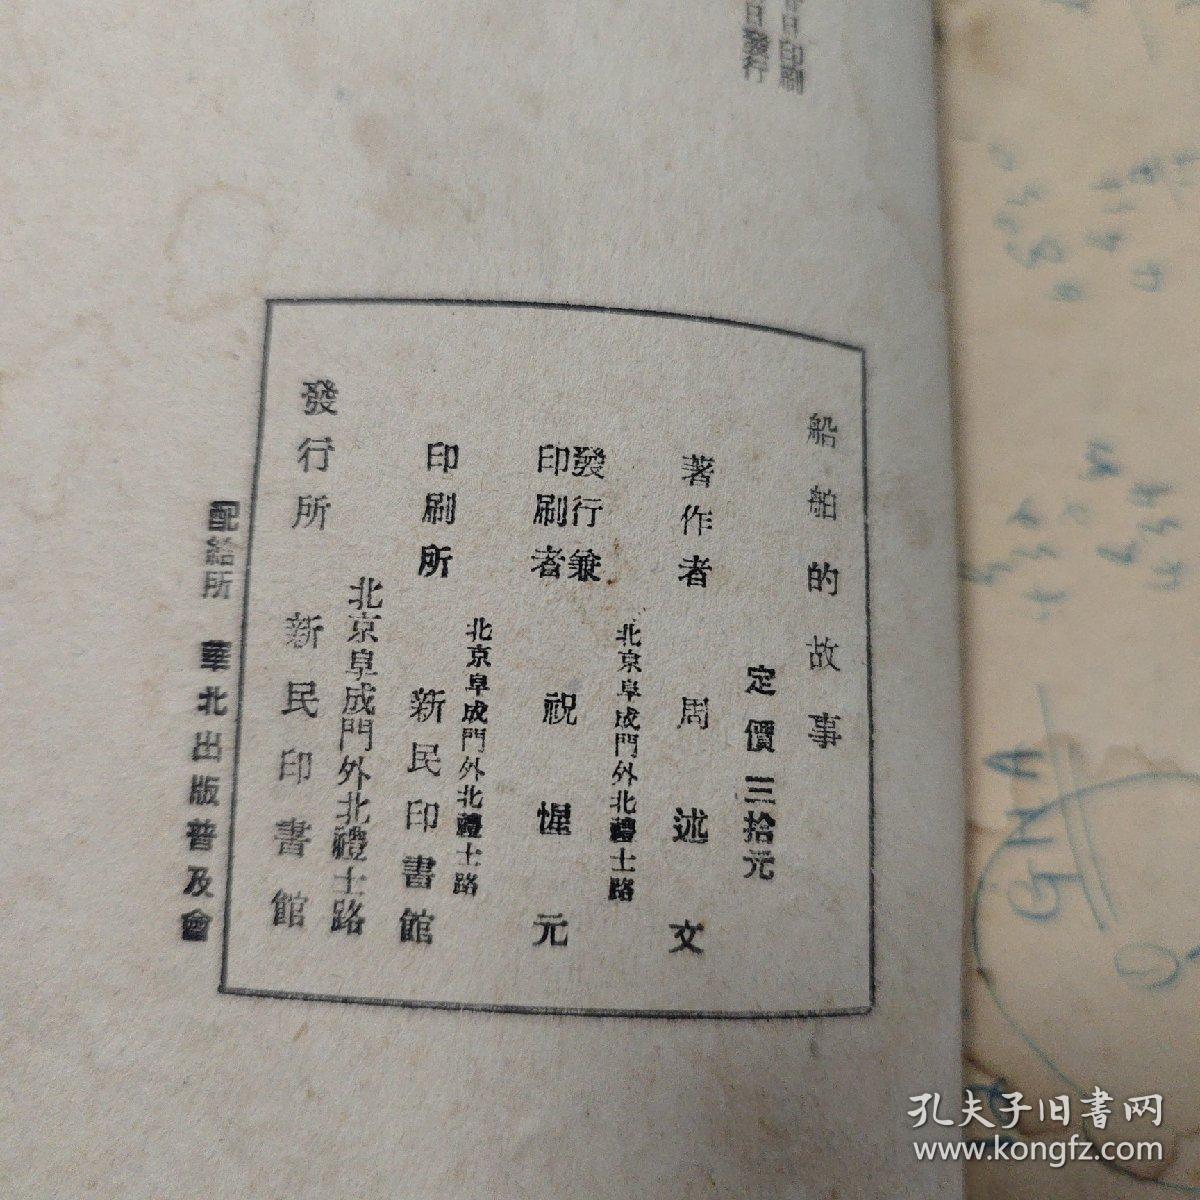 日印刷
日發行
船舶的故事
定價三拾元
著作者 周述文
北京阜成門外北禮士路
發行兼
印刷者 祝惺元
北京阜成門外北禮士路
印刷所 新民印書館
北京阜成門外北禮士路
發行所 新民印書館
配給所 華北出版普及會
GNA
孔夫子旧書网
www.kongfz.com